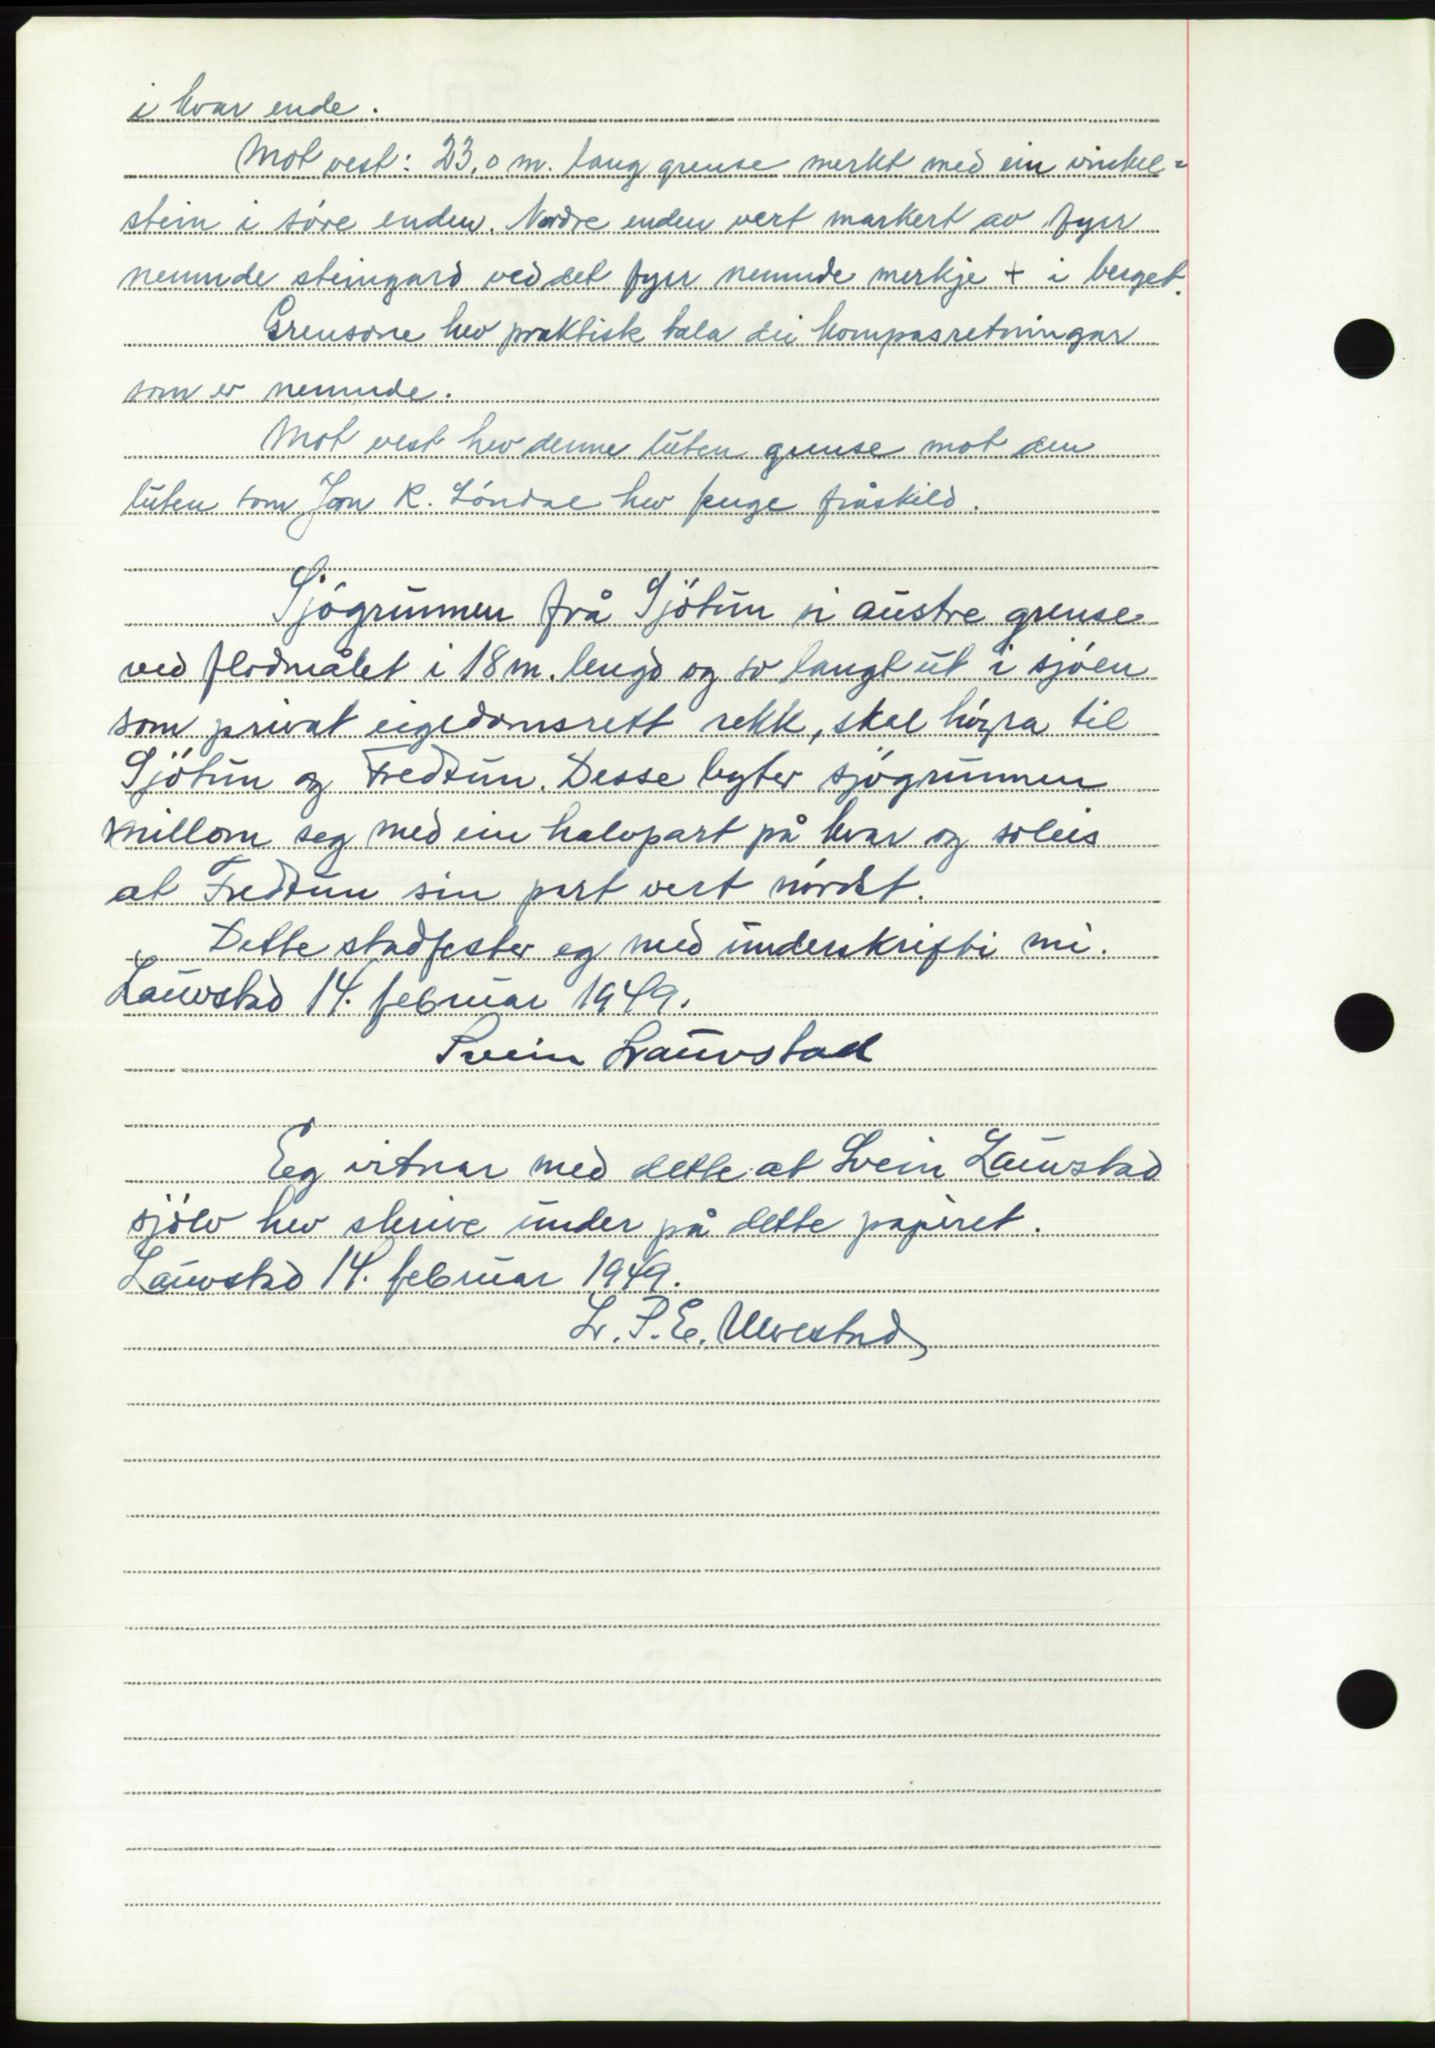 i kvar ende.
Mot vest: 23,0 m. lang grense merkt med ein vinkel=
stein i søre enden. Nordre enden vert markert av fyrr
nemnde steingard ved det fyrr nemnde merkje + i berget.
Grensone hev praktisk tala dei kompasretningar
som er nemnde.
Mot vest hev denne luten grense mot den
luten som Jon K. Løndal hev fenge fråskild.
Sjøgrunnen frå Sjøtun si austre grense
ved flodmålet i 18 m. lengd og so langt ut i sjøen
som privat eigedomsrett rekk, skal høyra til
Sjøtun og Fredtun. Desse byter sjøgrunnen
millom seg med ein halvpart på kvar og soleis
at Fredtun sin part vert nørdst.
Dette stadfester eg med underskrifti mi.
Lauvstad 14. februar 1949.
Svein Lauvstad
Eg vitnar med dette at Svein Lauvstad
sjølv hev skrive under på dette papiret.
Lauvstad 14. februar 1949.
L. P. E. Ulvestad